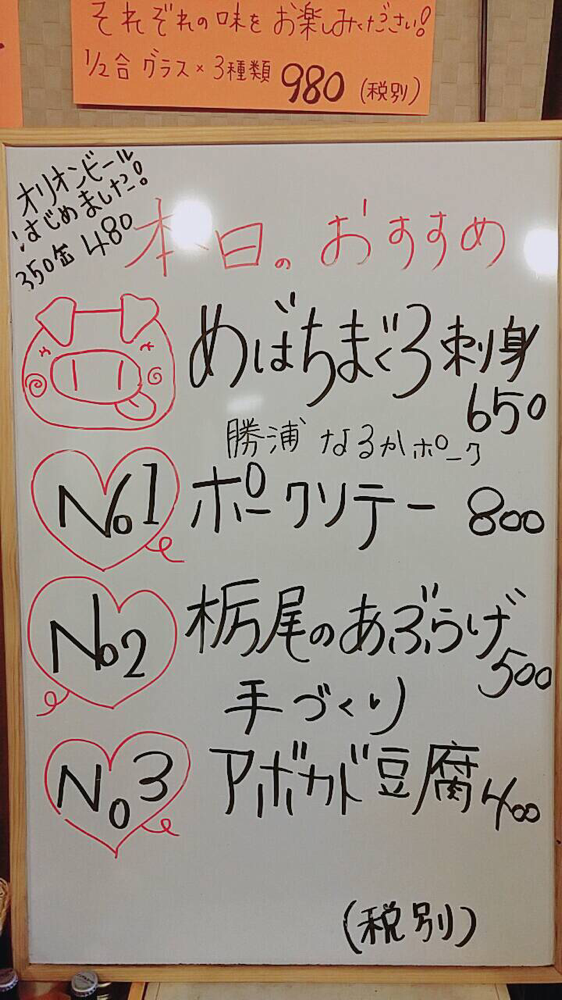 それぞれの味をお楽しみください!
1/2合 グラス×3種類 980 (税別)
オリオンビール
はじめました!
350缶 480
本日のおすすめ
めばちまぐろ刺身
650
勝浦 なるかポーク
No1 ポークソテー 800
No2 栃尾のあぶらげ
500
手づくり
No3 アボカド豆腐 400
(税別)